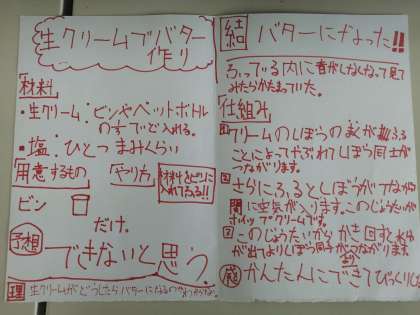 生クリームでバター
作り
材料
・生クリーム・ビンやペットボトル
の 入れる。
・塩・ひとつまみくらい
用意するもの
やり方
材料をビンに
入れてふる!!
ビン
だけ。
予想
できないと思う。
理
生クリームがどうしたらバターになるのかわからない。
結
バターになった!!
ふっている内に音がしなくなって見て
みたらかたまっていた。
仕組み
1 クリームのしぼうのまくがふる
ことによってやぶれてしぼう同士が
つながります。
2 さらにふるとしぼうがつながり
間に空気が入ります。このじょうたいが
ホイップクリームです。
3 このじょうたいからかき回すと水分
が出てよりしぼう同士がつながります
感
かんたんにできてびっくりした